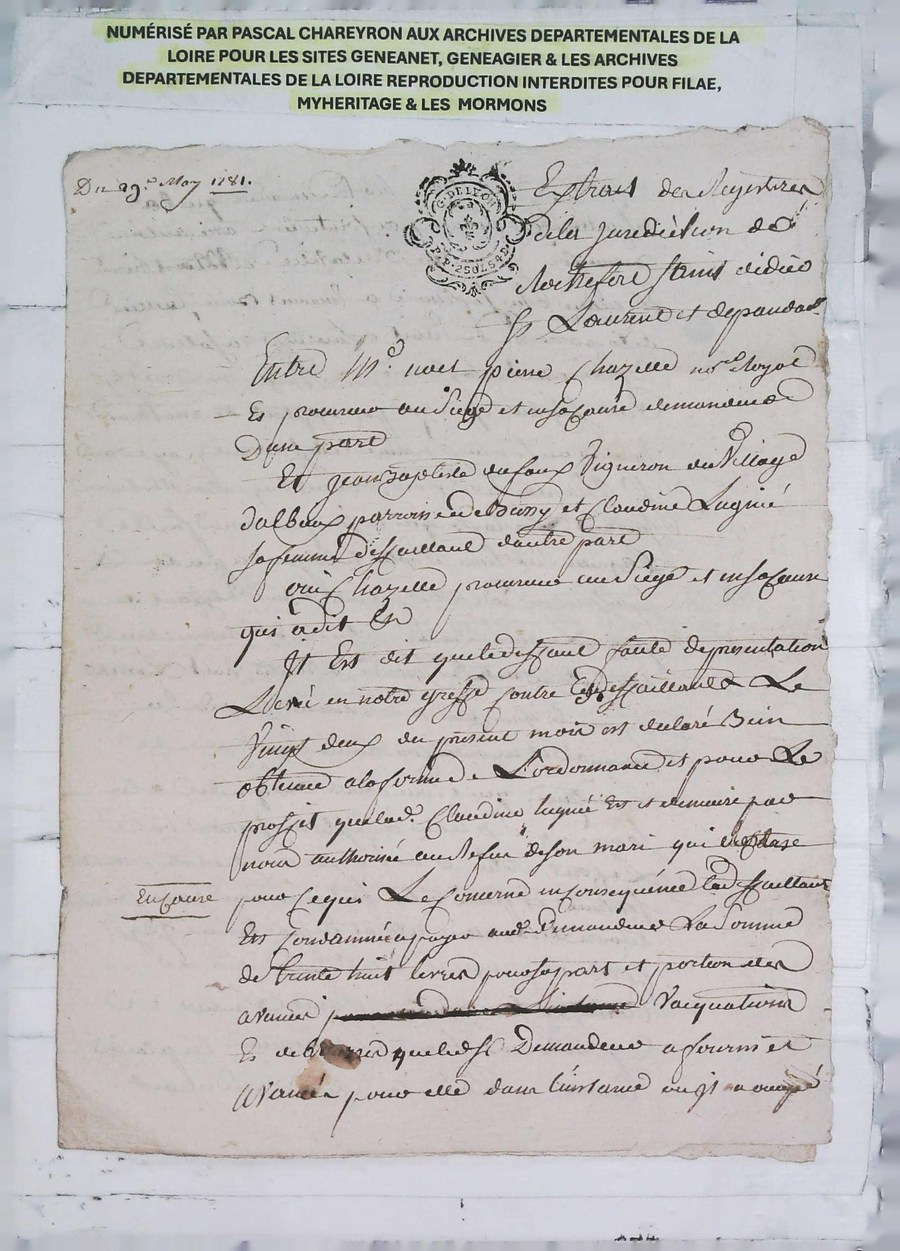 NUMÉRISÉ PAR PASCAL CHAREYRON AUX ARCHIVES DEPARTEMENTALES DE LA
LOIRE POUR LES SITES GENEANET, GENEAGIER & LES ARCHIVES
DEPARTEMENTALES DE LA LOIRE REPRODUCTION INTERDITES POUR FILAE,
MYHERITAGE & LES MORMONS
Du 29.e May 1781.
G. DE LYON
Extrait des Registres
de la jurediction de
Rochefort Saint didier
St Laurent et dependances
Entre Me noel pierre Chazelle nore Royal
Et procureur au Siege et en sa Cause demandeur
Dune part
Et jean baptiste dufaux Vigneron du Village
dalbaux parroisse de Bussy et Claudine Lugnié
sa femme deffaillant dautre part
oui Chazelle procureur au Siege et en sa Cause
qui a dit &c
Il Est dit que le deffaut faute de presentation
Levé en notre greffe Contre les deffaillants Le
Vingt deux du present mois est declaré Bien
obtenu a la forme de L'ordonnance et pour Le
proffit que lad. Claudine lugnié Est et demeure par
nous authorisée au Refus de son mari qui
pour ce qui Le Concerne en Consequence la deffaillante
En Cause
Est Condamnée a payer aud. Demandeur La Somme
de trente huit livres pour sa part et portion des
avances Vacquations
Et de que led. Sr Demandeur a fourni et
avancés pour elle dans l'instance ou il a occupé